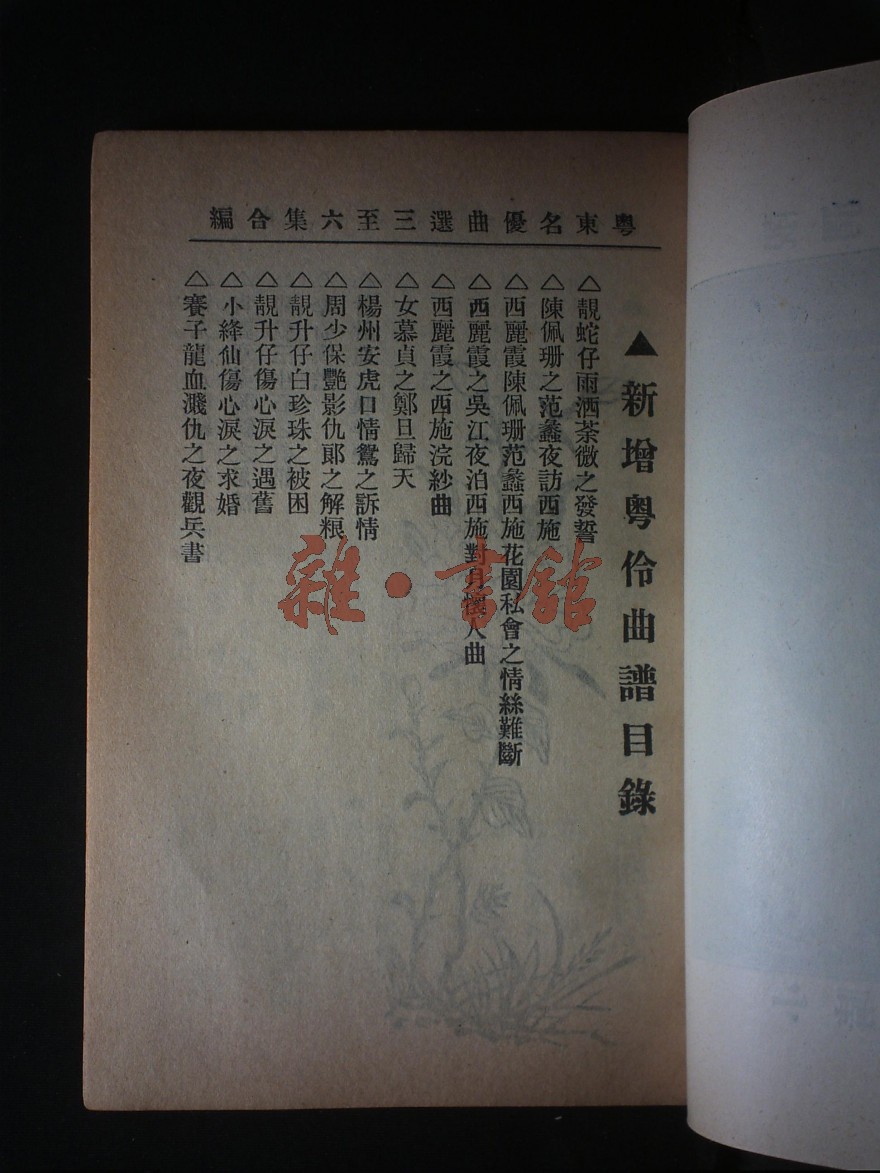 粵東名優曲選三至六集合編
▲新增粵伶曲譜目錄
△靚蛇仔雨洒荼薇之發誓
△陳佩珊之范蠡夜訪西施
△西麗霞陳佩珊范蠡西施花園私會之情絲難斷
△西麗霞之吳江夜泊西施對月懷人曲
△西麗霞之西施浣紗曲
△女慕貞之鄭旦歸天
△楊州安虎口情鴛之訴情
△周少保艷影仇郎之解粮
△靚升仔白珍珠之被困
△靚升仔傷心淚之遇舊
△小絳仙傷心淚之求婚
△賽子龍血濺仇之夜觀兵書
雜·書舘